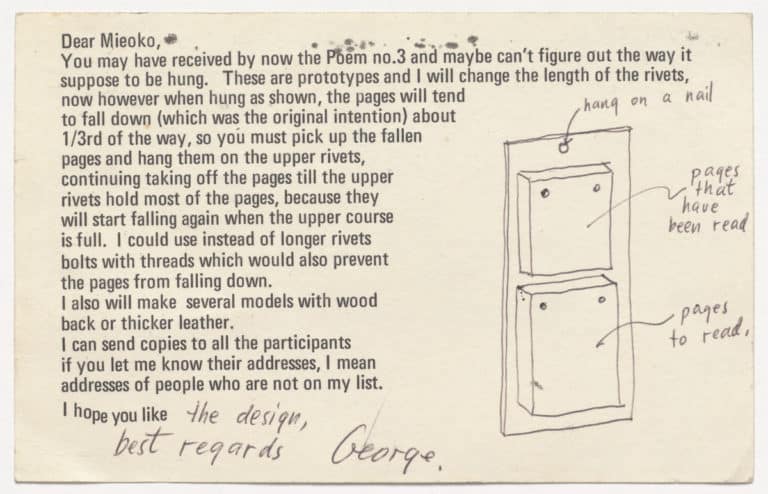 Dear Mieoko,
You may have received by now the Poem no.3 and maybe can't figure out the way it
suppose to be hung. These are prototypes and I will change the length of the rivets,
now however when hung as shown, the pages will tend
to fall down (which was the original intention) about
1/3rd of the way, so you must pick up the fallen
pages and hang them on the upper rivets,
continuing taking off the pages till the upper
rivets hold most of the pages, because they
will start falling again when the upper course
is full. I could use instead of longer rivets
bolts with threads which would also prevent
the pages from falling down.
I also will make several models with wood
back or thicker leather.
I can send copies to all the participants
if you let me know their addresses, I mean
addresses of people who are not on my list.
I hope you like the design,
best regards George.
hang on a nail
pages
that
have
been read
pages
to read.